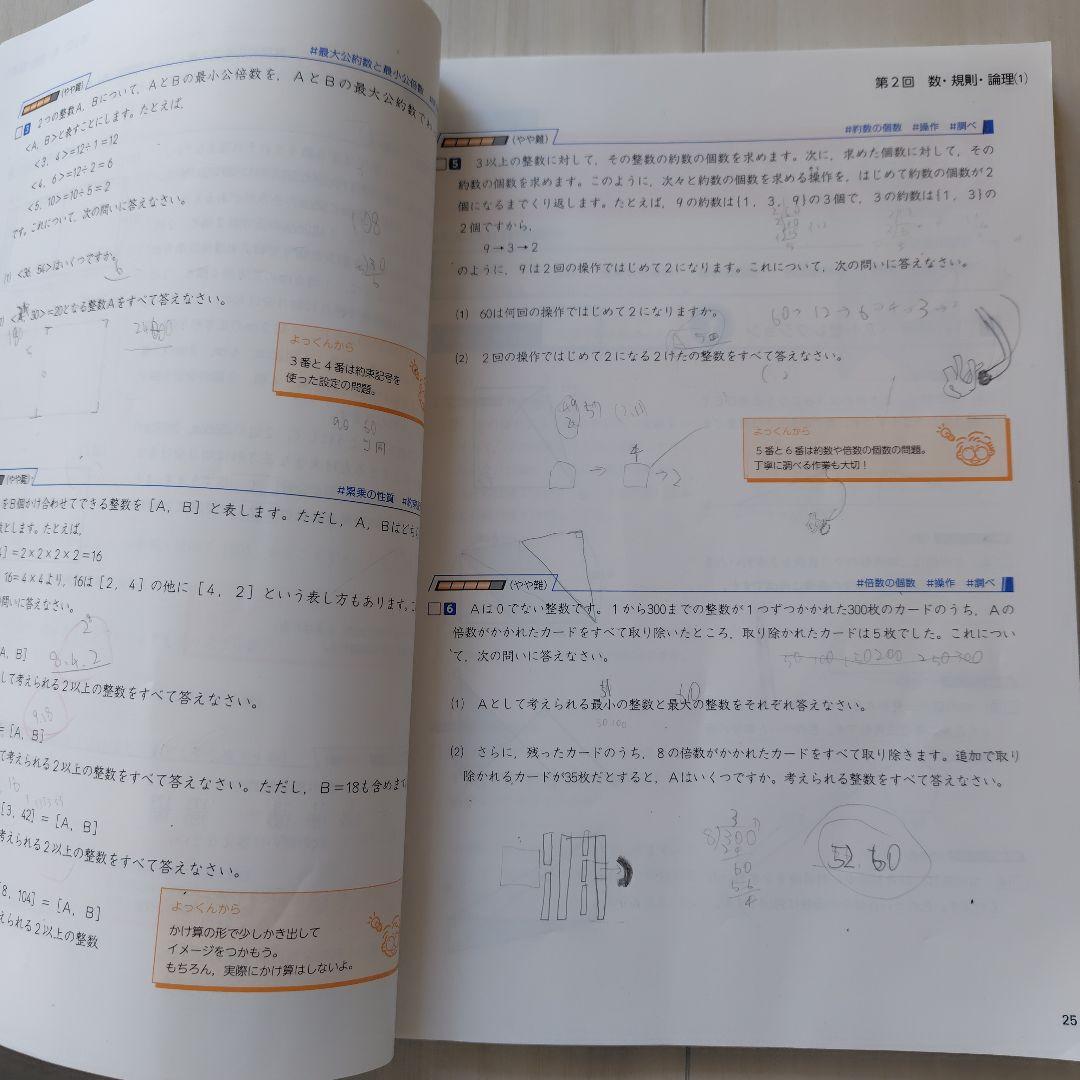 #最大公約数と最小公倍数
(やや難)
3 2つの整数A，Bについて，AとBの最小公倍数を，AとBの最大公約数でわ
<A，B>と表すことにします。たとえば，
<3，4>=12÷1=12
<4，6>=12÷2=6
<5，10>=10÷5=2
です。これについて，次の問いに答えなさい。
(1) <36，54>はいくつですか。
6
30>=20となる整数Aをすべて答えなさい。
よっくんから
3番と4番は約束記号を
使った設定の問題。
90 60
(やや難)
#累乗の性質
をB個かけ合わせてできる整数を[A，B]と表します。ただし，A，Bはどち
数とします。たとえば，
4]=2×2×2×2=16
16=4×4より，16は[2，4]の他に[4，2]という表し方もあります。
問いに答えなさい。
A，B]
8.4.2
して考えられる2以上の整数をすべて答えなさい。
=[A，B]
9.18
て考えられる2以上の整数をすべて答えなさい。ただし，B=18も含めます
[3，42]=[A，B]
考えられる2以上の整数をすべて答えなさい。
[8，104]=[A，B]
えられる2以上の整数
よっくんから
かけ算の形で少しかき出して
イメージをつかもう。
もちろん，実際にかけ算はしないよ。
第2回 数・規則・論理(1)
(やや難)
#約数の個数 #操作 #調べ
5 3以上の整数に対して，その整数の約数の個数を求めます。次に，求めた個数に対して，その
約数の個数を求めます。このように，次々と約数の個数を求める操作を，はじめて約数の個数が2
個になるまでくり返します。たとえば，9の約数は{1，3，9}の3個で，3の約数は{1，3}の
2個ですから，
9→3→2
のように，9は2回の操作ではじめて2になります。これについて，次の問いに答えなさい。
(1) 60は何回の操作ではじめて2になりますか。
60→12→6→4→3→2
5回
(2) 2回の操作ではじめて2になる2けたの整数をすべて答えなさい。
4
→ →2
よっくんから
5番と6番は約数や倍数の個数の問題。
丁寧に調べる作業も大切！
(やや難)
#倍数の個数 #操作 #調べ
6 Aは0でない整数です。1から300までの整数が1つずつかかれた300枚のカードのうち，Aの
倍数がかかれたカードをすべて取り除いたところ，取り除かれたカードは5枚でした。これについ
て，次の問いに答えなさい。
50 100 150 200 250 300
51 60
(1) Aとして考えられる最小の整数と最大の整数をそれぞれ答えなさい。
50.100
(2) さらに，残ったカードのうち，8の倍数がかかれたカードをすべて取り除きます。追加で取り
除かれるカードが35枚だとすると，Aはいくつですか。考えられる整数をすべて答えなさい。
3
8)300
24
60
56
4
52.60
25